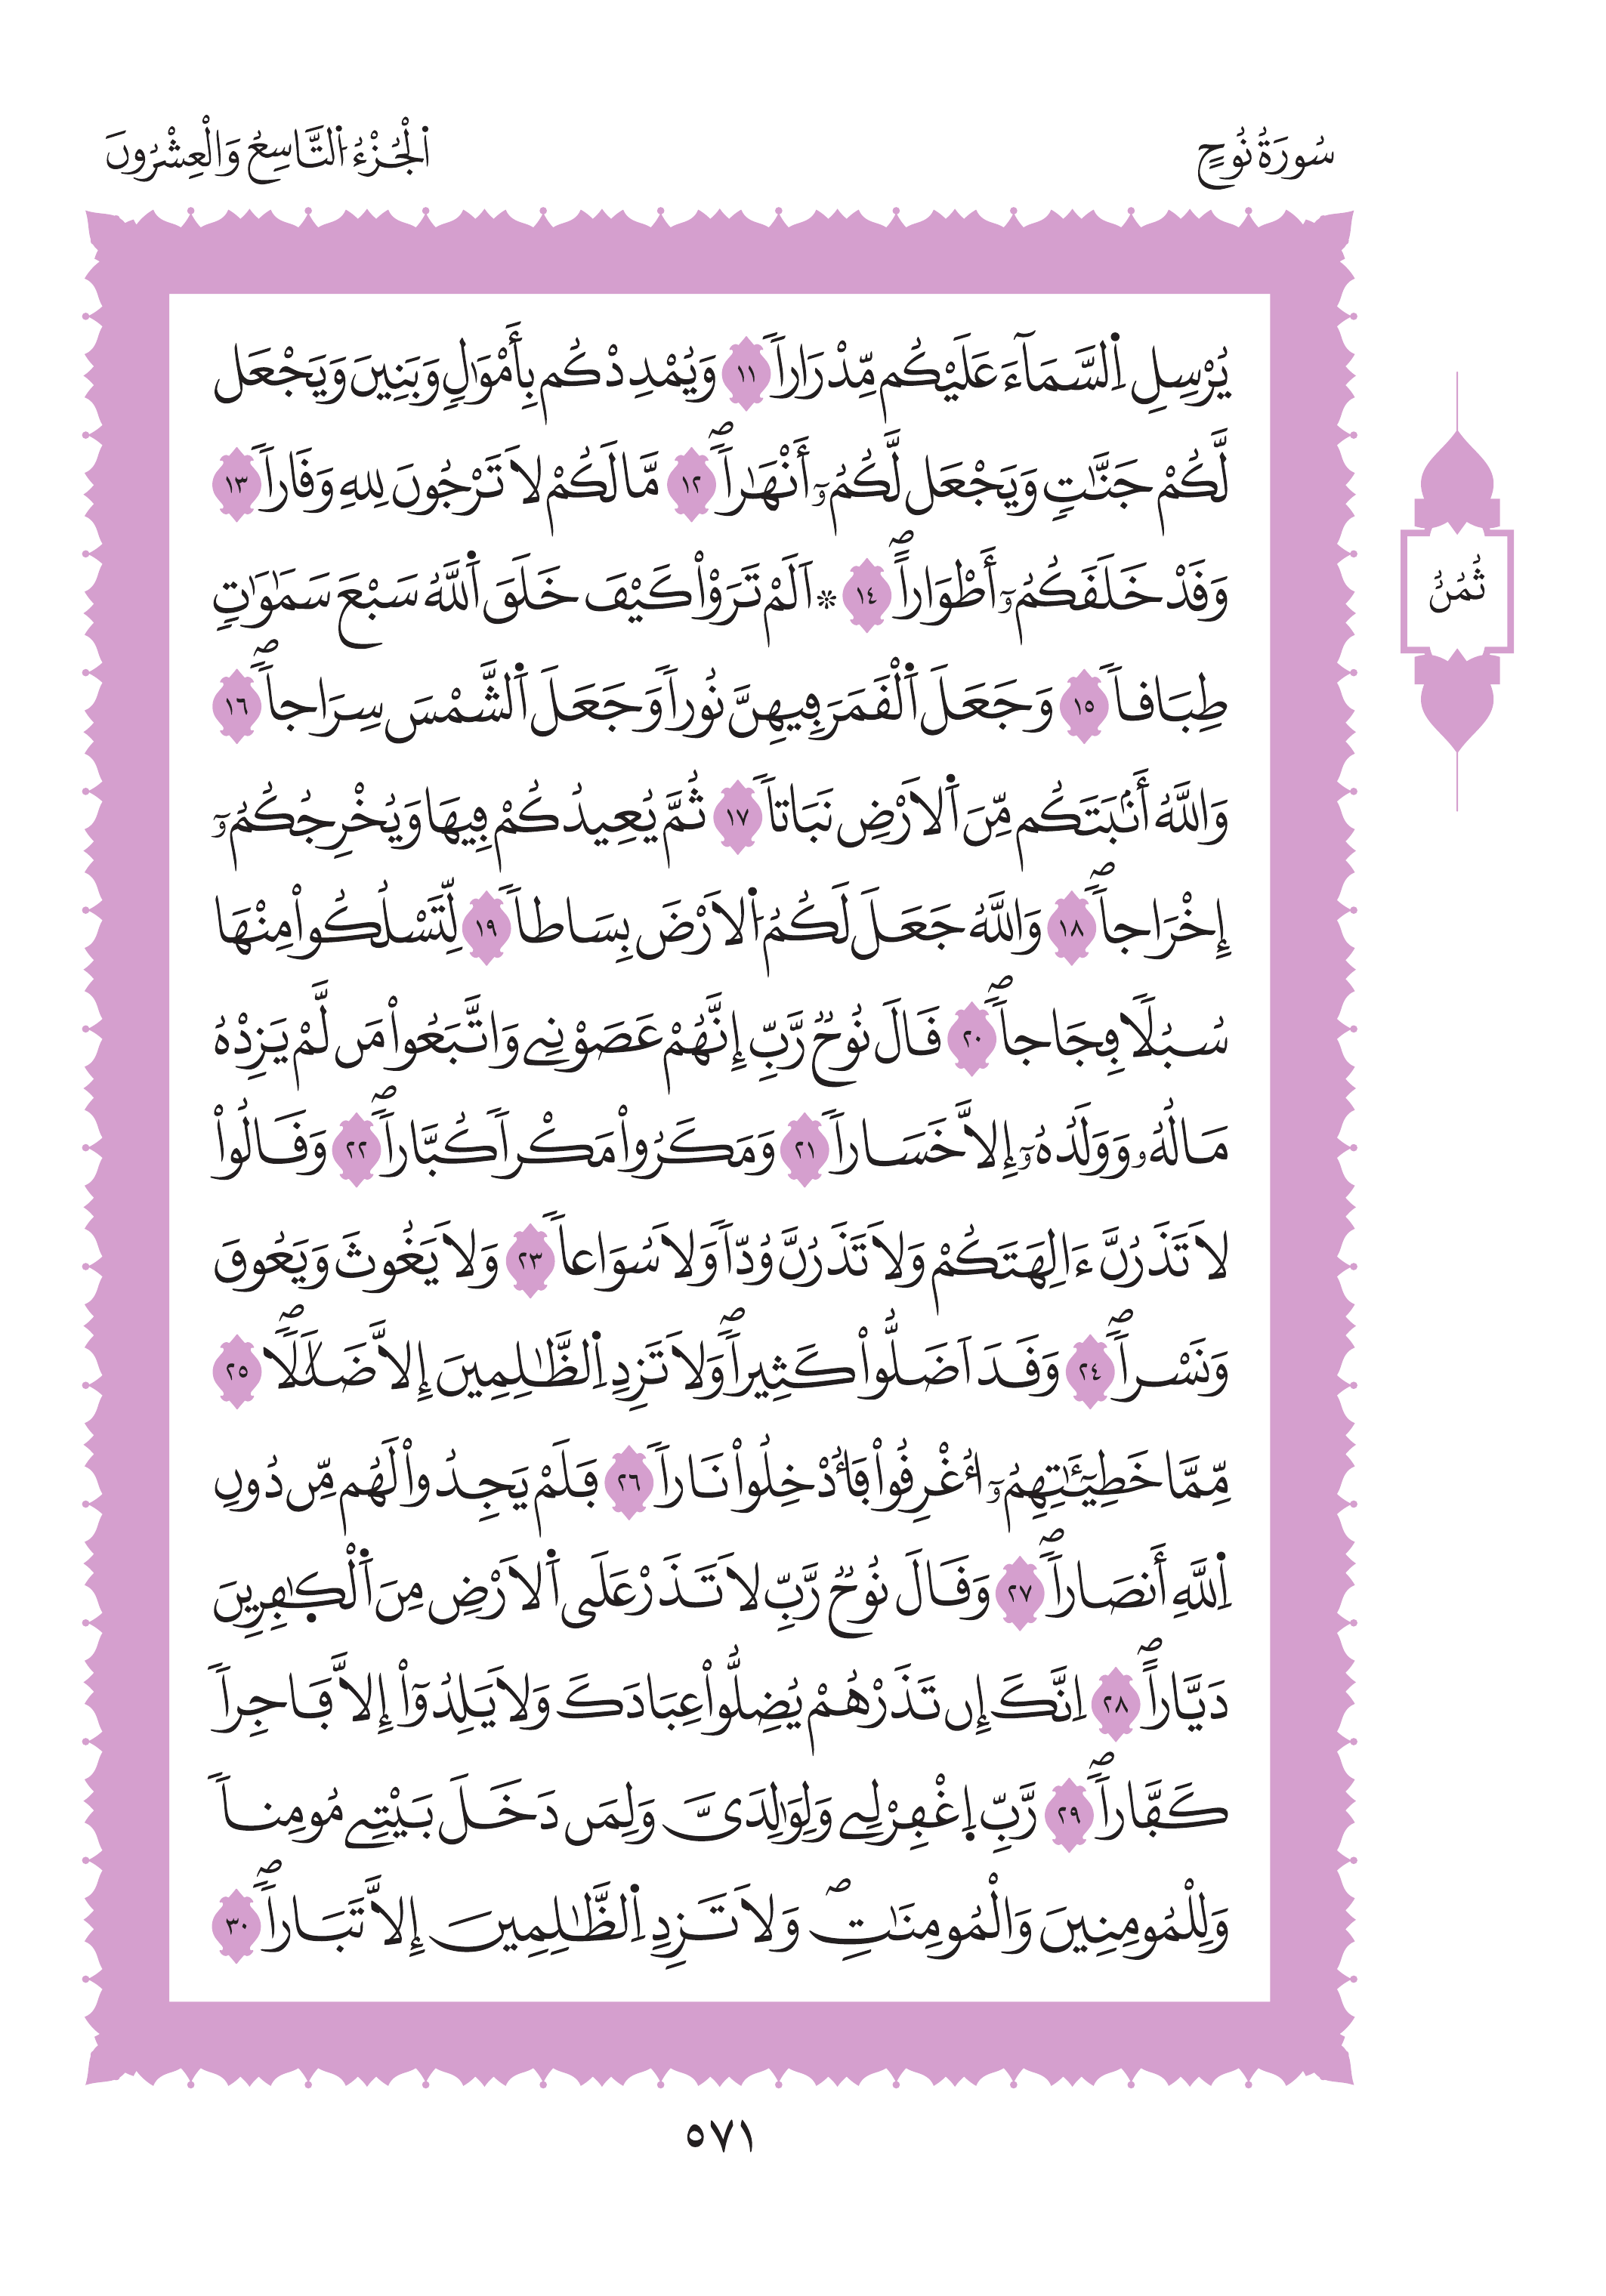 سُورَةُ نُوحٍ
اَ۬لْجُزْءُ اُ۬لتَّاسِعُ وَالْعِشْرُونَ
يُرْسِلِ اِ۬لسَّمَآءَ عَلَيْكُم مِّدْرَاراٗ ١١ وَيُمْدِدْكُم بِأَمْوَٰلٖ وَبَنِينَ وَيَجْعَل
لَّكُمْ جَنَّٰتٖ وَيَجْعَل لَّكُمُۥٓ أَنْهَٰراٗۖ ١٢ مَّا لَكُمْ لَا تَرْجُونَ لِلهِ وَقَاراٗ ١٣
وَقَدْ خَلَقَكُمُۥٓ أَطْوَاراًۖ ١٤ ۞ اَلَمْ تَرَوْاْ كَيْفَ خَلَقَ اَ۬للَّهُ سَبْعَ سَمَٰوَٰتٖ
طِبَاقاٗ ١٥ وَجَعَلَ اَ۬لْقَمَرَ فِيهِنَّ نُوراٗ وَجَعَلَ اَ۬لشَّمْسَ سِرَاجاٗۖ ١٦
وَاللَّهُ أَنۢبَتَكُم مِّنَ اَ۬لَارْضِ نَبَاتاٗ ١٧ ثُمَّ يُعِيدُكُمْ فِيهَا وَيُخْرِجُكُمُۥٓ
إِخْرَاجاٗۖ ١٨ وَاللَّهُ جَعَلَ لَكُمُ اُ۬لَارْضَ بِسَاطاٗ ١٩ لِّتَسْلُكُواْ مِنْهَا
سُبُلاٗ فِجَاجاٗۖ ٢٠ قَالَ نُوحٞ رَّبِّ إِنَّهُمْ عَصَوْنِے وَاتَّبَعُواْ مَن لَّمْ يَزِدْهُ
مَالُهُۥ وَوَلَدُهُۥٓ إِلَّا خَسَاراٗ ٢١ وَمَكَرُواْ مَكْراٗ كُبَّاراٗۖ ٢٢ وَقَالُواْ
لَا تَذَرُنَّ ءَالِهَتَكُمْ وَلَا تَذَرُنَّ وُدّاٗ وَلَا سُوَاعاٗ ٢٣ وَلَا يَغُوثَ وَيَعُوقَ
وَنَسْراٗۖ ٢٤ وَقَدَ اَضَلُّواْ كَثِيراٗۖ وَلَا تَزِدِ اِ۬لظَّٰلِمِينَ إِلَّا ضَلَٰلاٗۖ ٢٥
مِّمَّا خَطِيٓـَٰٔتِهِمُۥٓ أُغْرِقُواْ فَأُدْخِلُواْ نَاراٗ ٢٦ فَلَمْ يَجِدُواْ لَهُم مِّن دُونِ
اِ۬للَّهِ أَنصَاراٗۖ ٢٧ وَقَالَ نُوحٞ رَّبِّ لَا تَذَرْ عَلَى اَ۬لَارْضِ مِنَ اَ۬لْكٰ۪فِرِينَ
دَيَّاراًۖ ٢٨ اِنَّكَ إِن تَذَرْهُمْ يُضِلُّواْ عِبَادَكَ وَلَا يَلِدُوٓاْ إِلَّا فَاجِراٗ
كَفَّاراٗۖ ٢٩ رَّبِّ اِ۪غْفِرْ لِے وَلِوَٰلِدَيَّ وَلِمَن دَخَلَ بَيْتِے مُومِناٗ
وَلِلْمُومِنِينَ وَالْمُومِنَٰتِۖ وَلَا تَزِدِ اِ۬لظَّٰلِمِينَ إِلَّا تَبَاراٗۖ ٣٠
ثُمُنٌ
٥٧١